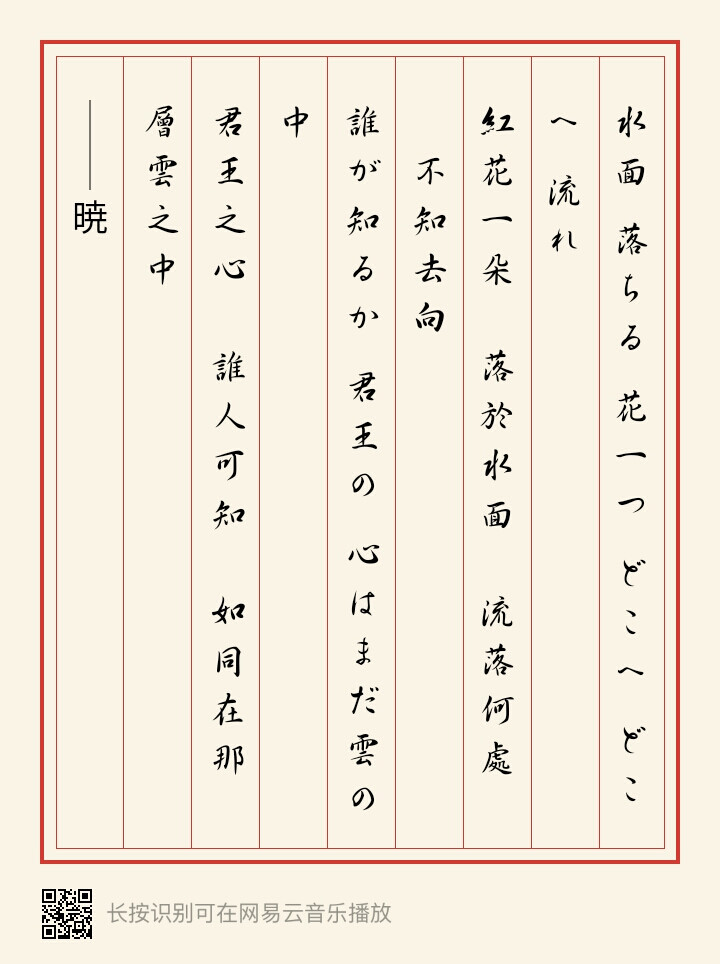 水面 落ちる 花一つ どこへ どこ
へ 流れ
紅花一朵 落於水面 流落何處
不知去向
誰が知るか 君王の 心はまだ雲の
中
君王之心 誰人可知 如同在那
層雲之中
——暁
长按识别可在网易云音乐播放